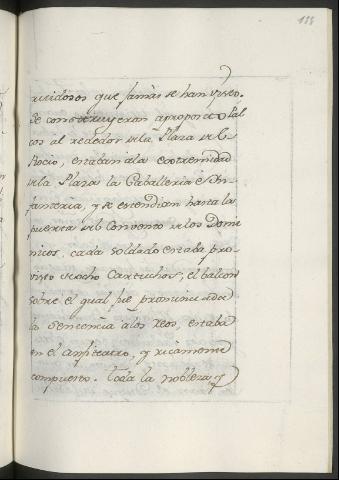 118
ruidosos que jamàs se han visto.
Se construyeran aproporcio Pal
cos al rededor de la Plaza del
Rocio, estaban ala extremidad
de la Plaza la Caballeria è In
fanteria, y se estendian hasta la
puerta del Convento de los Domi
nicos, cada Soldado estaba pro
visto de ocho Cartuchos, el balcon
sobre el qual fue pronunciada
la Sentencia alos Reos, estaba
en el anfiteatro, y ricamente
compuesto. Toda la nobleza y